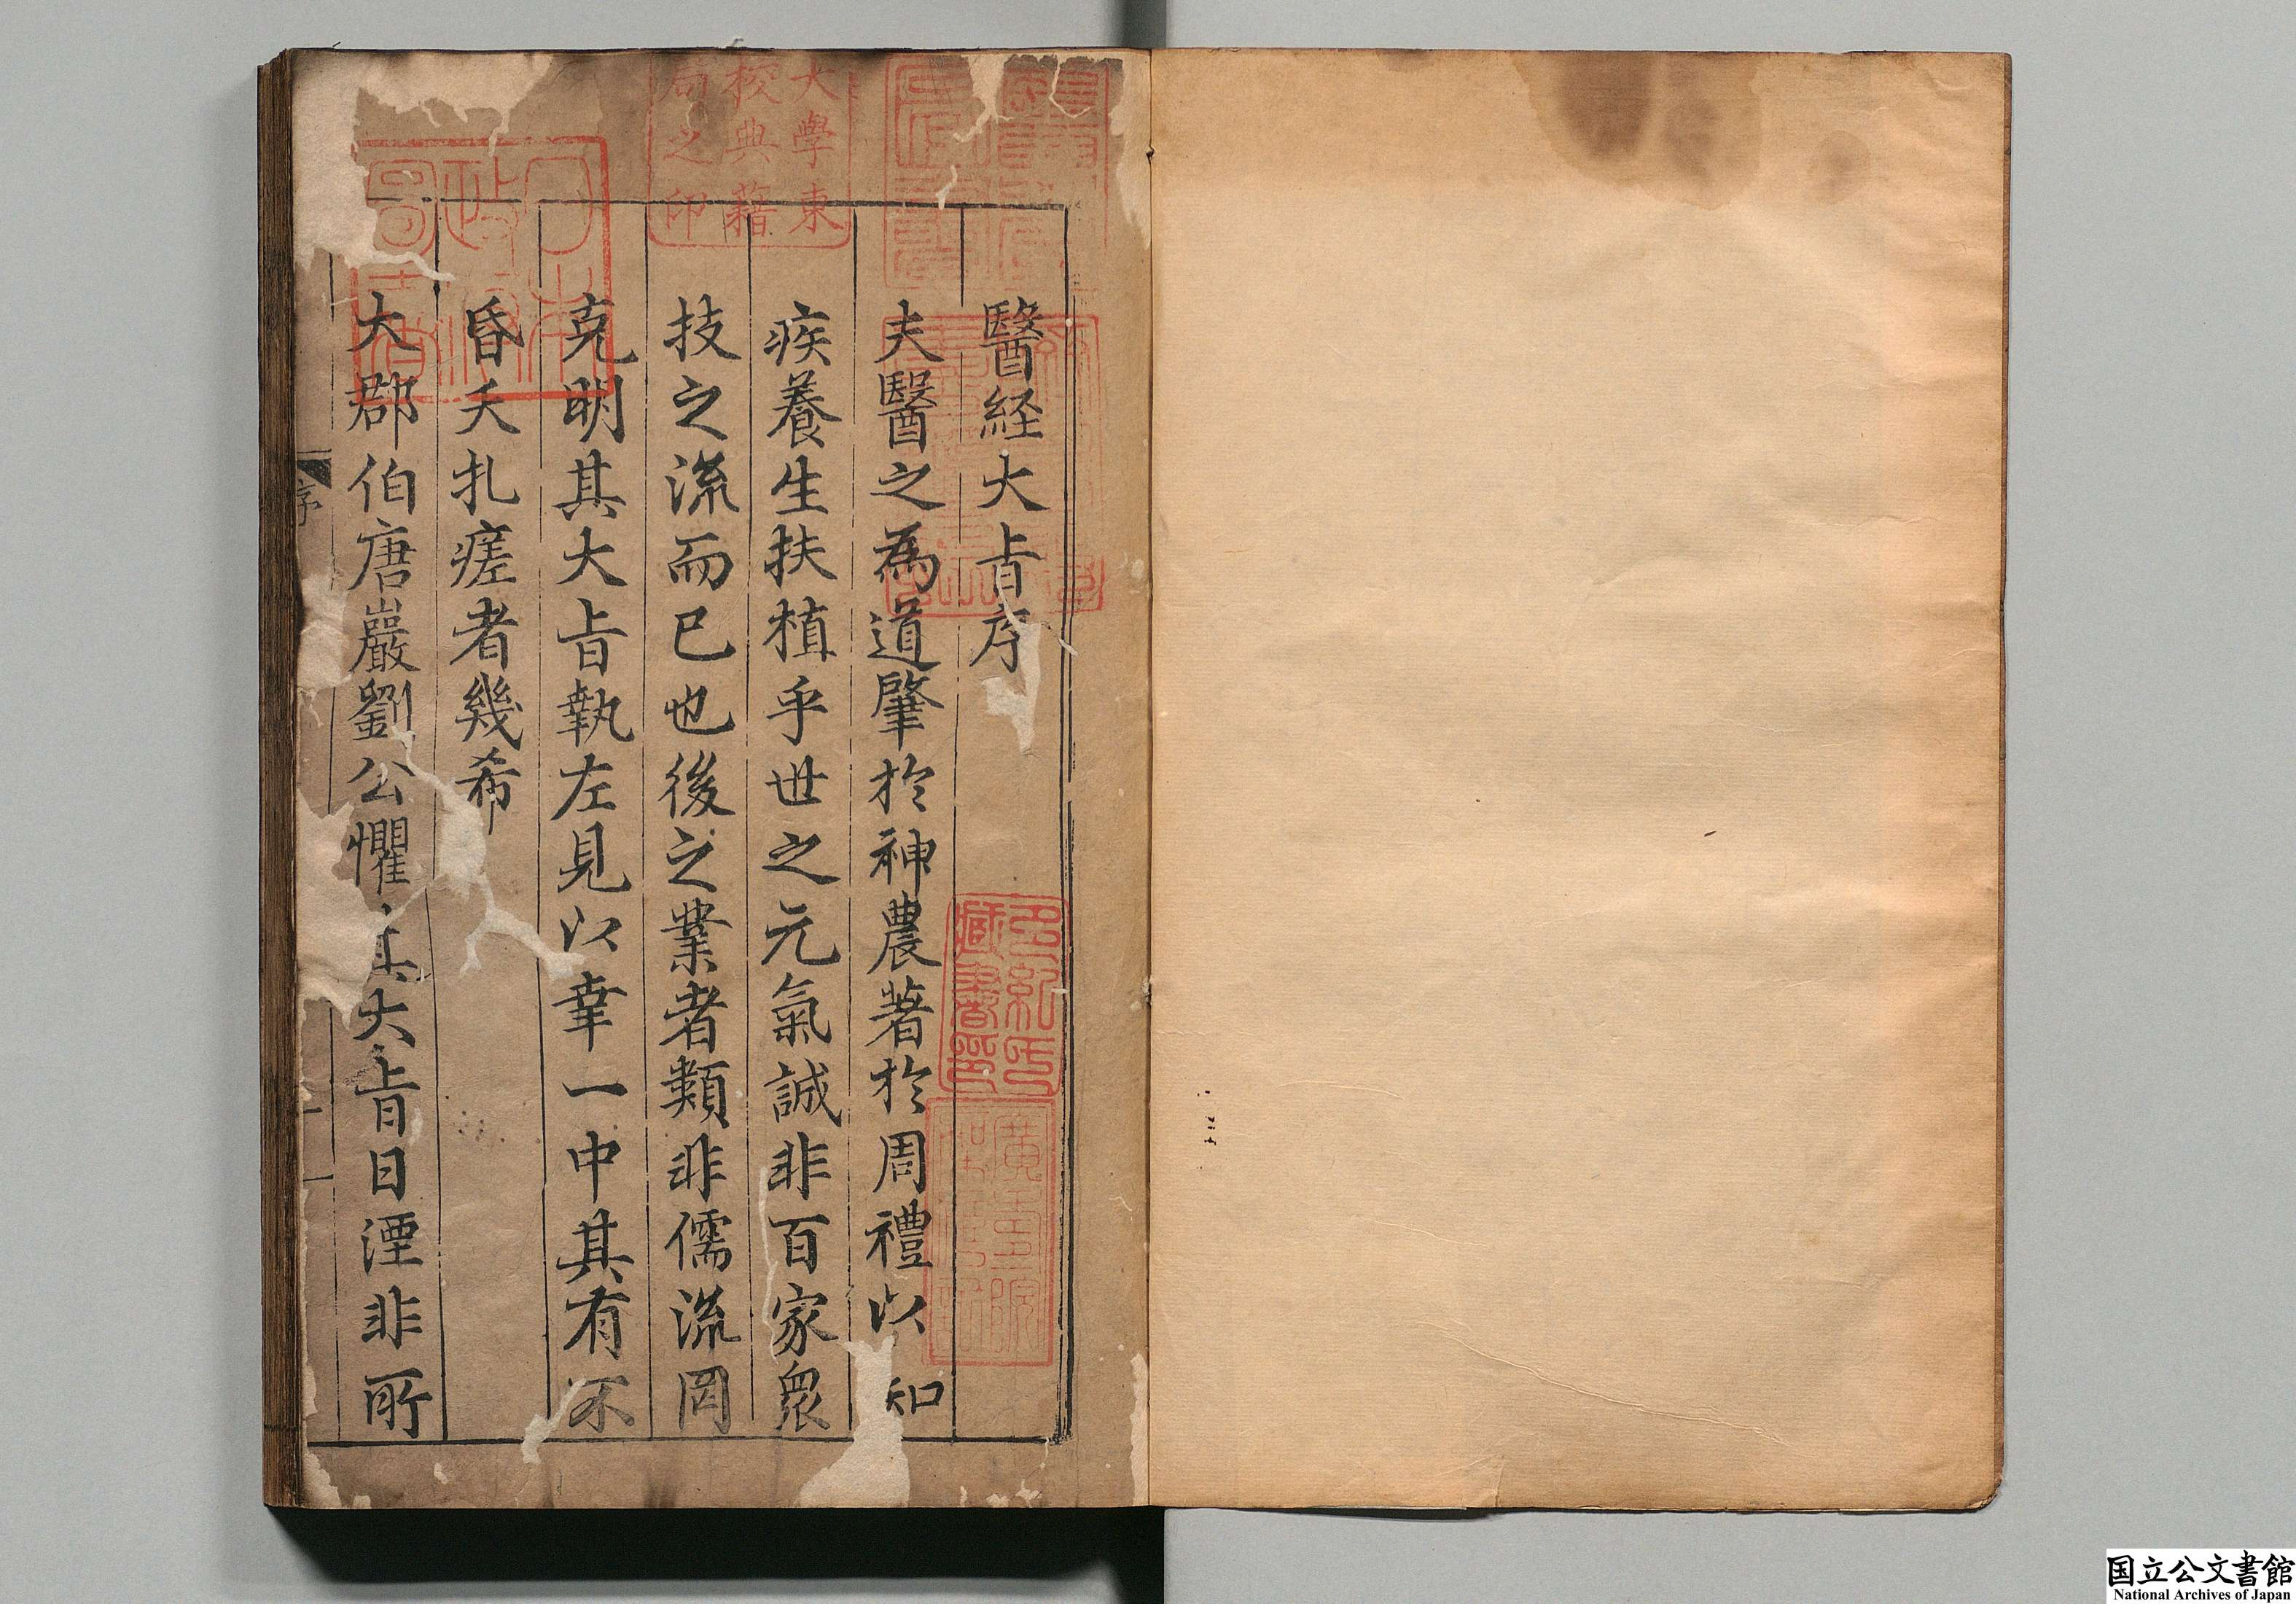 醫経大㫖序
夫醫之為道肇於神農著於周禮以知
疾養生扶植乎世之元氣誠非百家衆
技之流而已也後之業者類非儒流罔
克明其大㫖執左見以幸一中其有不
昏夭札瘥者幾希
大郡伯唐巖劉公懼其大㫖日湮非所
序
大學東
校典籍
局之印
日本
政府
圖書
国立公文書館
National Archives of Japan